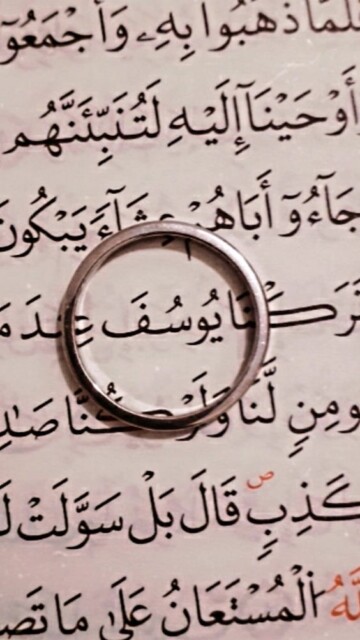 لَمَّا ذَهَبُوا بِهِۦ وَأَجْمَعُوٓ
أَوْحَيْنَآ إِلَيْهِ لَتُنَبِّئَنَّهُم
جَآءُوٓ أَبَاهُمْ عِشَآءً يَبْكُونَ
تَرَكْنَا يُوسُفَ عِندَ مَ
ومِنٍ لَّنَا وَلَوْ كُنَّا صَٰدِ
كَذِبٍ ص قَالَ بَلْ سَوَّلَتْ لَ
لَّهُ ٱلْمُسْتَعَانُ عَلَىٰ مَا تَصِ